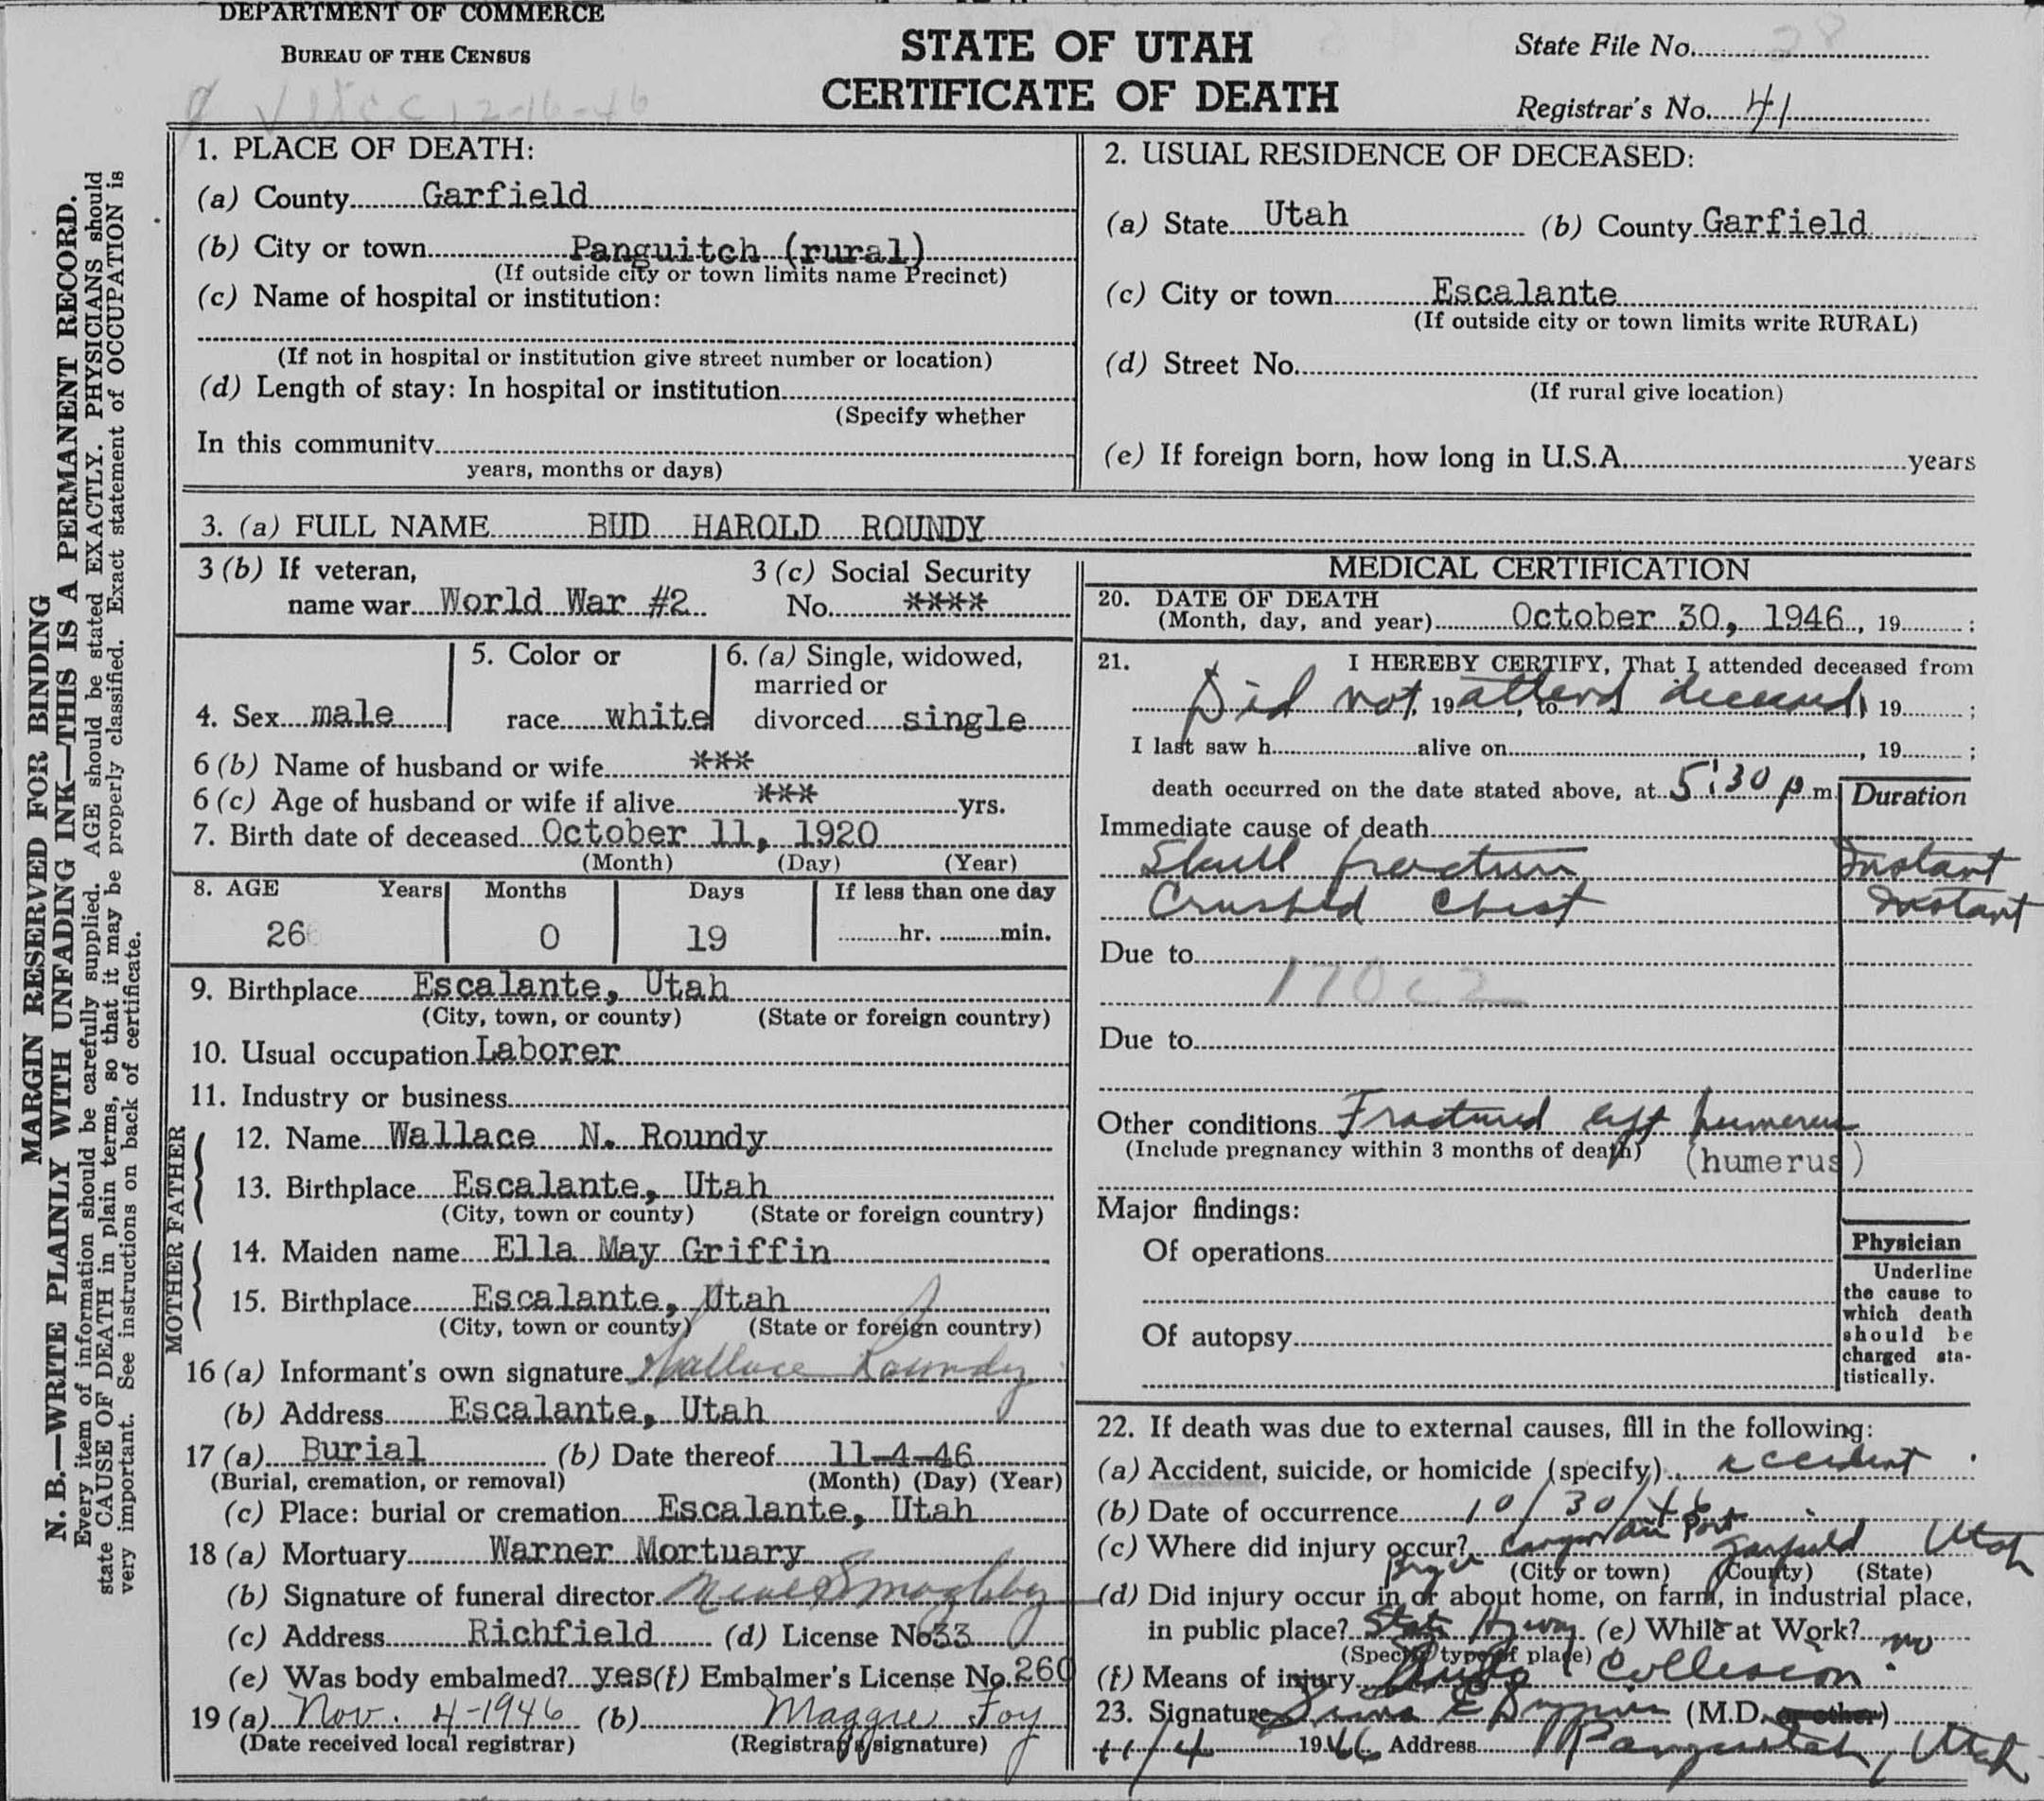 DEPARTMENT OF COMMERCE
BUREAU OF THE CENSUS
STATE OF UTAH
CERTIFICATE OF DEATH
State File No. 28
Registrar's No. 41
12-16-46
MARGIN RESERVED FOR BINDING
N. B.—WRITE PLAINLY WITH UNFADING INK—THIS IS A PERMANENT RECORD.
Every item of information should be carefully supplied. AGE should be stated EXACTLY. PHYSICIANS should
state CAUSE OF DEATH in plain terms, so that it may be properly classified. Exact statement of OCCUPATION is
very important. See instructions on back of certificate.
1. PLACE OF DEATH:
(a) County Garfield
(b) City or town Panguitch (rural)
(If outside city or town limits name Precinct)
(c) Name of hospital or institution:
(If not in hospital or institution give street number or location)
(d) Length of stay: In hospital or institution
(Specify whether
In this community
years, months or days)
2. USUAL RESIDENCE OF DECEASED:
(a) State Utah (b) County Garfield
(c) City or town Escalante
(If outside city or town limits write RURAL)
(d) Street No.
(If rural give location)
(e) If foreign born, how long in U.S.A. years
3. (a) FULL NAME BUD HAROLD ROUNDY
3 (b) If veteran,
name war World War #2
3 (c) Social Security
No. ****
4. Sex male
5. Color or
race white
6. (a) Single, widowed,
married or
divorced single
6 (b) Name of husband or wife ***
6 (c) Age of husband or wife if alive *** yrs.
7. Birth date of deceased October 11, 1920
(Month) (Day) (Year)
8. AGE Years Months Days If less than one day
26 0 19 hr. min.
9. Birthplace Escalante, Utah
(City, town, or county) (State or foreign country)
10. Usual occupation Laborer
11. Industry or business
FATHER
12. Name Wallace N. Roundy
13. Birthplace Escalante, Utah
(City, town or county) (State or foreign country)
MOTHER
14. Maiden name Ella May Griffin
15. Birthplace Escalante, Utah
(City, town or county) (State or foreign country)
16 (a) Informant's own signature Wallace Roundy
(b) Address Escalante, Utah
17 (a) Burial (b) Date thereof 11-4-46
(Burial, cremation, or removal) (Month) (Day) (Year)
(c) Place: burial or cremation Escalante, Utah
18 (a) Mortuary Warner Mortuary
(b) Signature of funeral director
(c) Address Richfield (d) License No 33
(e) Was body embalmed? yes (f) Embalmer's License No. 260
19 (a) Nov. 4-1946 (b) Maggie Foy
(Date received local registrar) (Registrar's signature)
MEDICAL CERTIFICATION
20. DATE OF DEATH
(Month, day, and year) October 30, 1946, 19 ;
21. I HEREBY CERTIFY, That I attended deceased from
Did not, 19 attend, to deceased, 19 ;
I last saw h alive on , 19 ;
death occurred on the date stated above, at 5:30 p m
Duration
Immediate cause of death
Skull fracture Instant
Crushed Chest Instant
Due to
170c2
Due to
Other conditions Fractured left humerus
(Include pregnancy within 3 months of death) (humerus)
Major findings:
Of operations
Of autopsy
Physician
Underline
the cause to
which death
should be
charged sta-
tistically.
22. If death was due to external causes, fill in the following:
(a) Accident, suicide, or homicide (specify) accident
(b) Date of occurrence 10/30/46
(c) Where did injury occur? Bryce Canyon Air Port Garfield Utah
(City or town) (County) (State)
(d) Did injury occur in or about home, on farm, in industrial place,
in public place? State Hiway (e) While at Work? no
(Specify type of place)
(f) Means of injury Auto Collision
23. Signature (M.D. or other)
11/4 1946 Address Panguitch, Utah